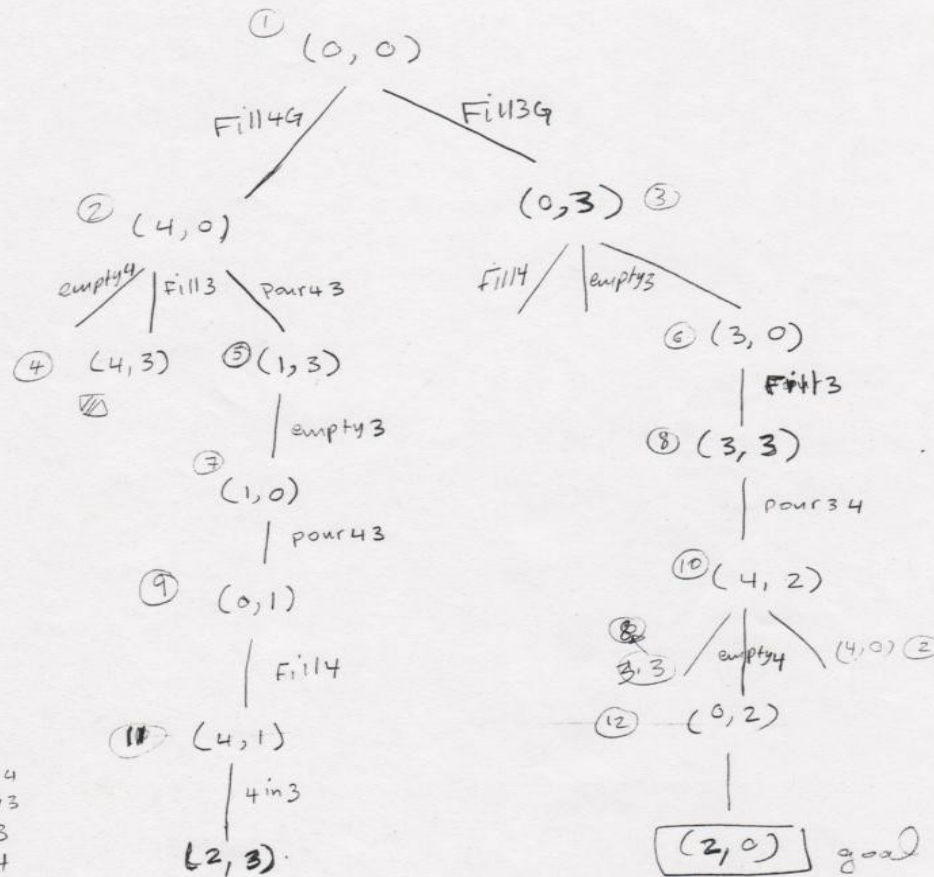 ① (0,0)
Fill4G Fill3G
② (4,0) (0,3) ③
empty4 Fill3 pour43 Fill4 empty3
④ (4,3) ⑤ (1,3) ⑥ (3,0)
empty3 Fill3
⑦ (1,0) ⑧ (3,3)
pour43 pour34
⑨ (0,1) ⑩ (4,2)
Fill4 ⑧ 3,3 empty4 (4,0) ②
⑪ (4,1) ⑫ (0,2)
4in3
(2,3). (2,0) goal
4
3
3
4